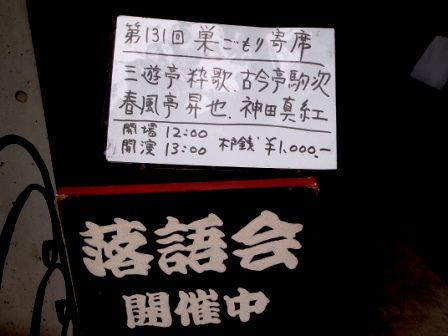 第131回 巣ごもり寄席
三遊亭 粋歌、古今亭駒次
春風亭 昇也、神田真紅
開場 12:00
開演 13:00 木戸銭 ¥1,000.-
落語会
開催中